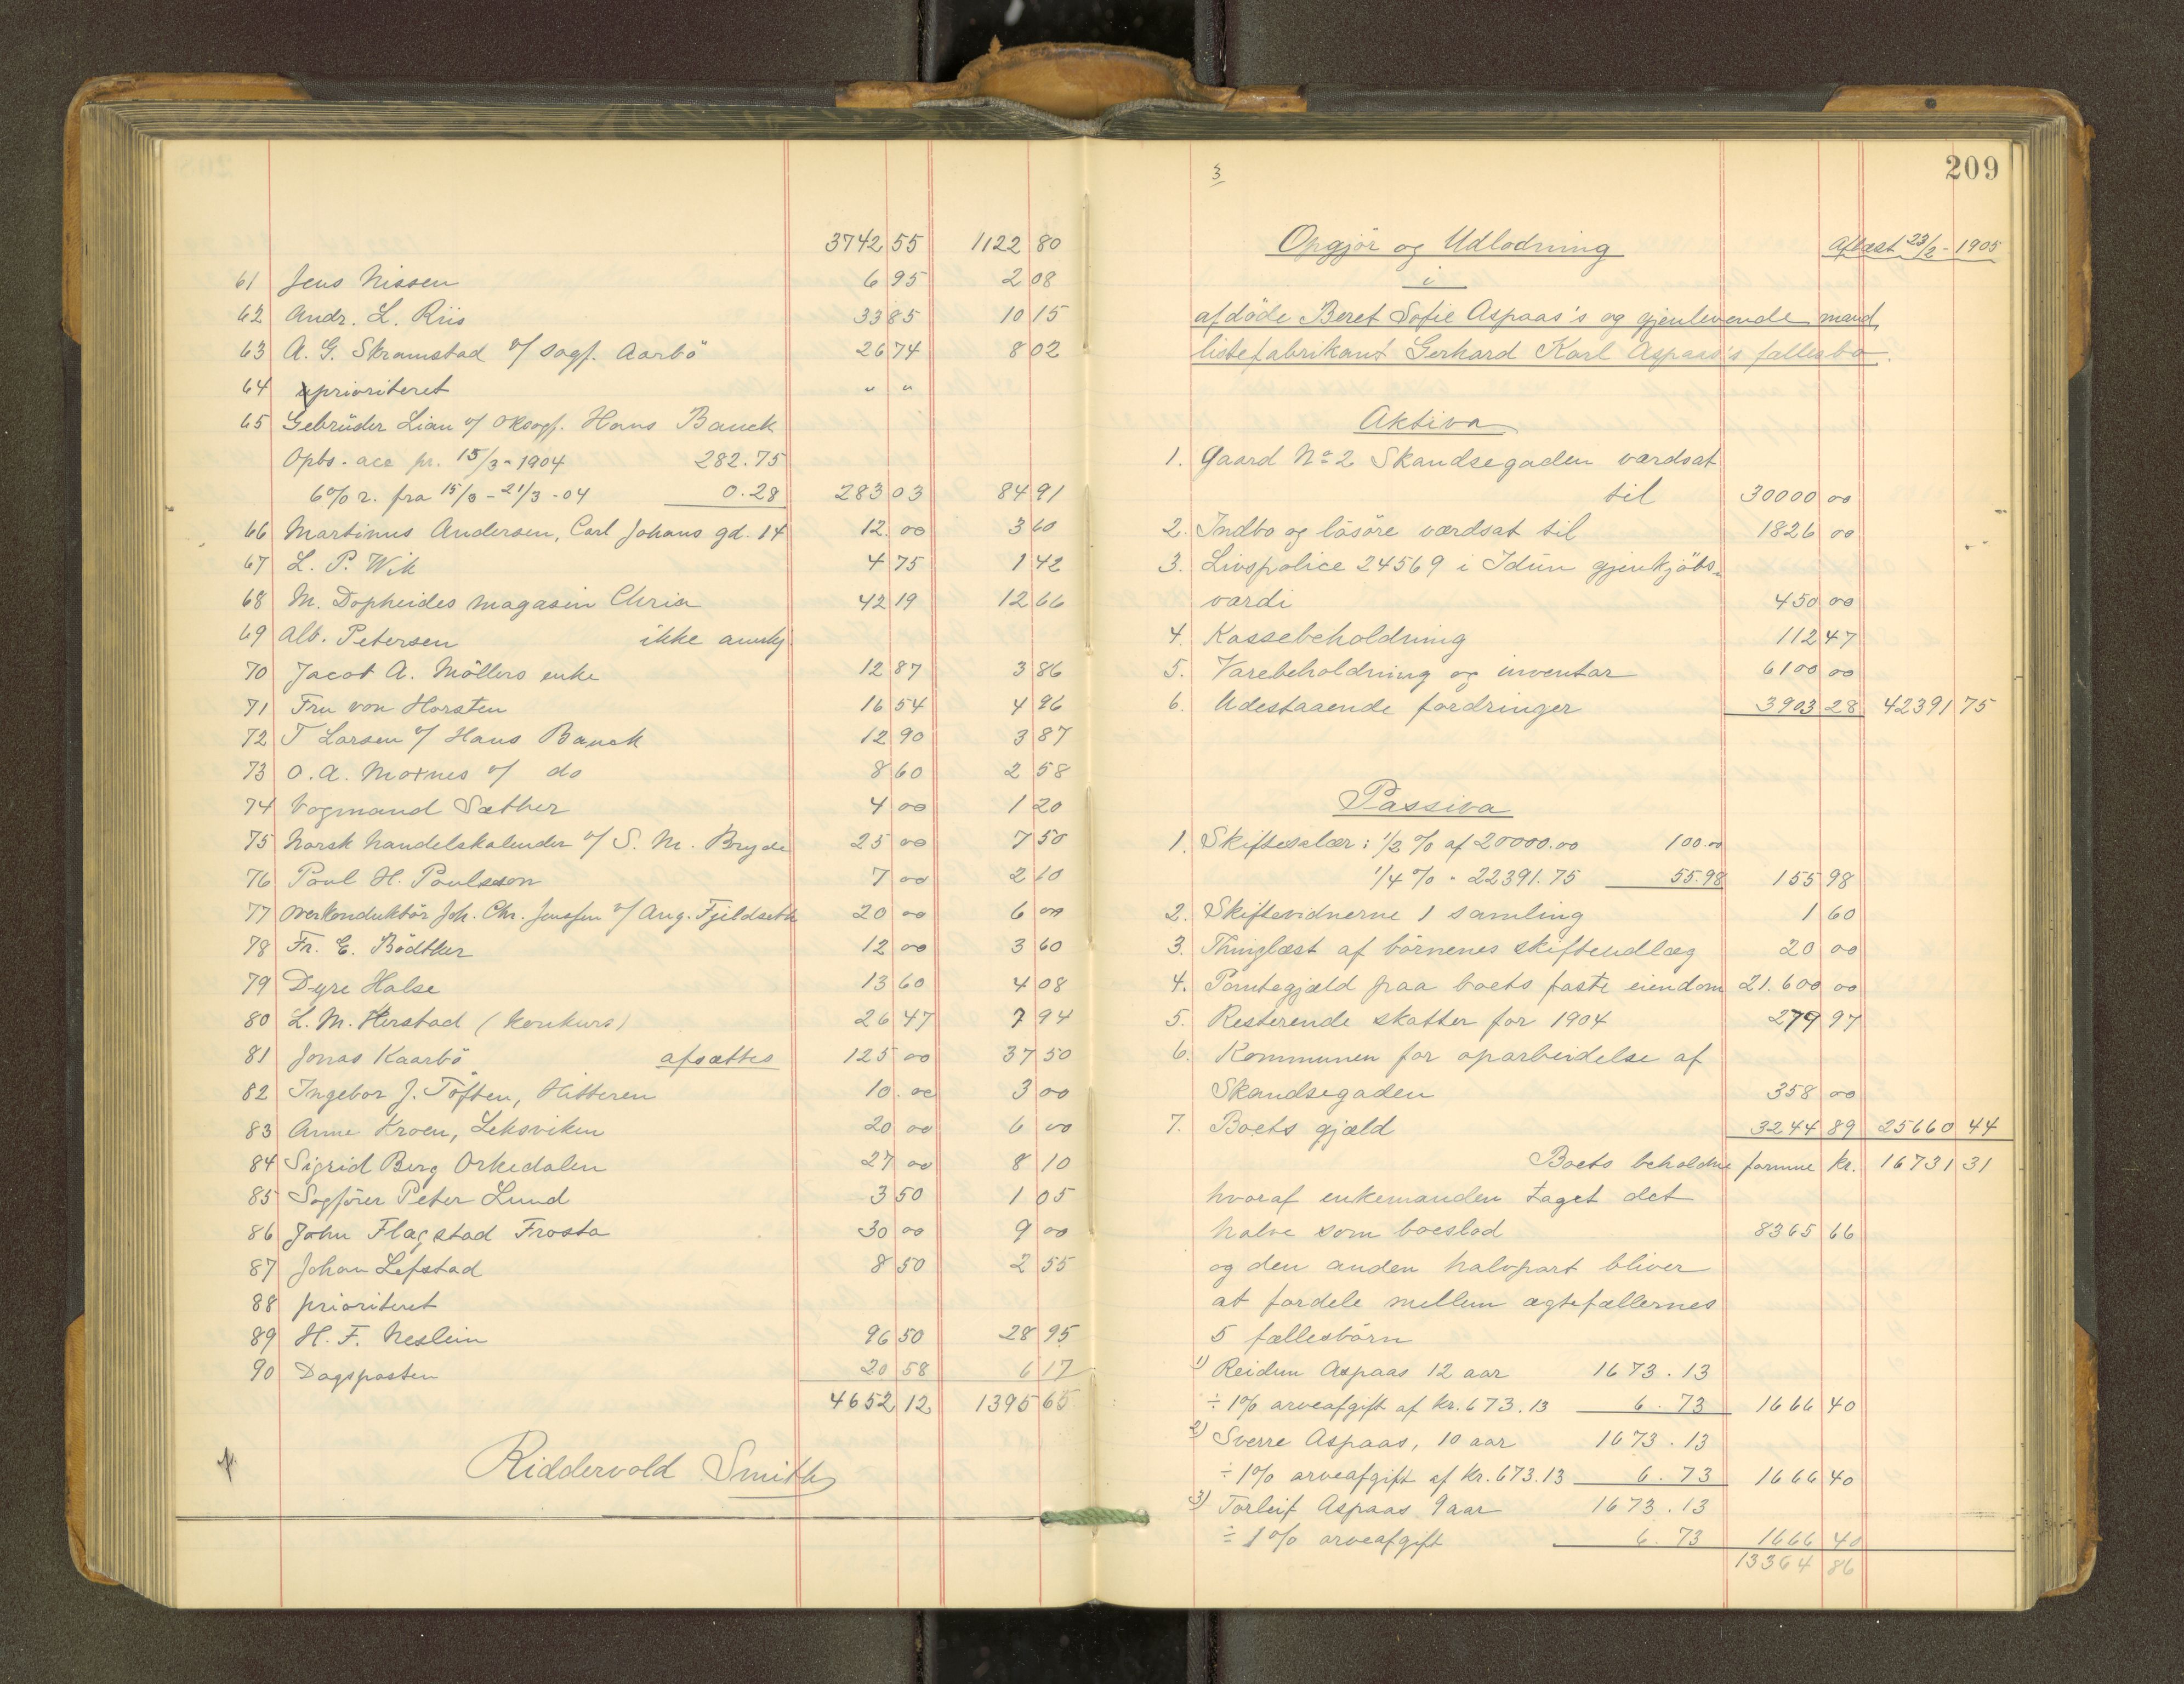 3742 55 1122 80
61 Jens Nissen 6 95 2 08
62 Andr. L. Riis 33 85 10 15
63 A. G. Skramstad v/ sagf. Aarbö 26 74 8 02
64 prioriteret " "
65 Gebrüder Lian v/ oRsagf. Hans Bauck
Opbs. acc pr. 15/3-1904 282.75
6% r. fra 15/3 - 21/3 -04 0.28 283 03 84 91
66 Martinus Andersen, Carl Johans gd. 14 12.00 3 60
67 L. P. Wik 4 75 1 42
68 M. Dopheides magasin Chria 42 19 12 66
69 Alb. Petersen ikke anmkj
70 Jacob A. Möllers enke 12 87 3 86
71 Fru von Horsten 16 54 4 96
72 T Larsen v/ Hans Bauck 12 90 3 87
73 O. A. Moxnes v/ do 8 60 2 58
74 Vogmand Sæther 4 00 1 20
75 Norsk handelskalender v/ S. M. Bryde 25 00 7 50
76 Poul H. Poulsson 7 00 2 10
77 Overkonduktör Joh. Chr. Jenssen v/ Aug. Fjeldseth 20 00 6 00
78 Fr. E. Bödtker 12 00 3 60
79 Dyre Halse 13 60 4 08
80 L. M. Herstad (konkurs) 26 47 7 94
81 Jonas Kaarbö afsættes 125 00 37 50
82 Ingebor J. Töften, Hitteren 10.00 3 00
83 Anne Kroen, Leksviken 20 00 6 00
84 Sigrid Berg Orkedalen 27 00 8 10
85 Sagförer Peter Lund 3 50 1 05
86 John Flagstad Frosta 30 00 9 00
87 Johan Lefstad 8 50 2 55
88 prioriteret
89 H. F. Neslein 96 50 28 95
90 Dagsposten 20 58 6 17
4652 12 1395 65
Riddervold Smith
3
209
Opgjör og Udlodning
Aflæst 23/2-1905
i
afdöde Beret Sofie Aspaas's og gjenlevende mand,
listefabrikant Gerhard Karl Aspaas's fællesbo.
Aktiva
1. Gaard No 2 Skandsegaden værdsat
til 30000 00
2. Indbo og lösöre værdsat til 1826 00
3. Livspolice 24569 i Idun gjenkjöbs-
værdi 450 00
4. Kassebeholdning 112 47
5. Varebeholdning og inventar 6100 00
6. Udestaaende fordringer 3903 28 42391 75
Passiva
1. Skiftesalær: 1/2 % af 20000.00 100.00
1/4 % " 22391.75 55.98 155 98
2. Skiftevidnerne 1 samling 1 60
3. Thinglæst af börnenes skifteudlæg 20 00
4. Pantegjæld paa boets faste eiendom 21.600 00
5. Resterende skatter for 1904 279 97
6. Kommunen for oparbeidelse af
Skandsegaden 358 00
7. Boets gjæld 3244 89 25660 44
Boets beholdne formue kr. 16731 31
hvoraf enkemanden taget det
halve som boeslod 8365 66
og den anden halvpart bliver
at fordele mellem ægtefællernes
5 fællesbörn
1) Reidun Aspaas 12 aar 1673.13
÷ 1% arveafgift af kr. 673.13 6.73 1666 40
2) Sverre Aspaas, 10 aar 1673.13
÷ 1% arveafgift af kr. 673.13 6.73 1666 40
3) Torleif Aspaas 9 aar 1673.13
÷ 1% arveafgift 6.73 1666 40
13364 86